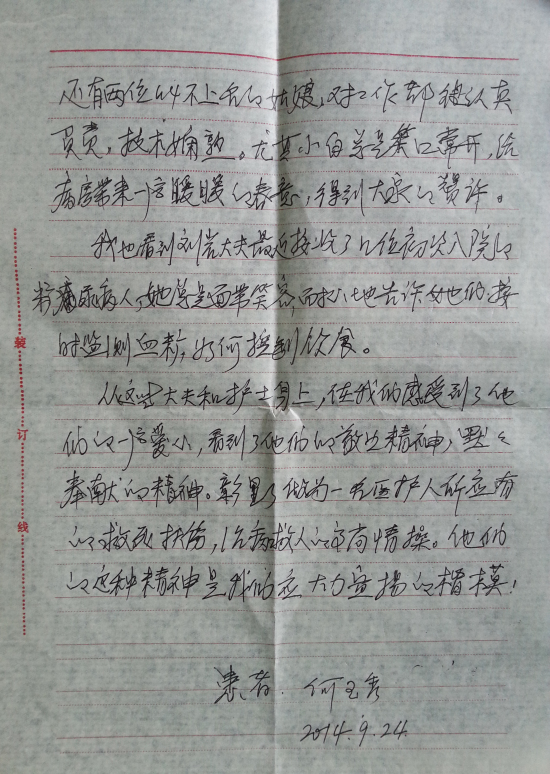 还有两位叫不上名的姑娘,对工作都很认真
负责,技术娴熟。尤其小白总是笑口常开,给
病房带来一片暖暖的春意,得到大家的赞许。
我也看到刘岩大夫最近接收了几位初次入院的
糖尿病人,她总是面带笑容,而耐心地告诉她他的按
时监测血糖,如何控制饮食。
从这些大夫和护士身上,使我们感受到了他
们的一片爱心,看到了他们的敬业精神,默々
奉献的精神。彰显了做为一名医护人所应有
的救死扶伤,治病救人的高尚情操。他们
的这种精神是我们应大力宣扬的楷模!
患者: 何玉秀
2014.9.24
装
订
线